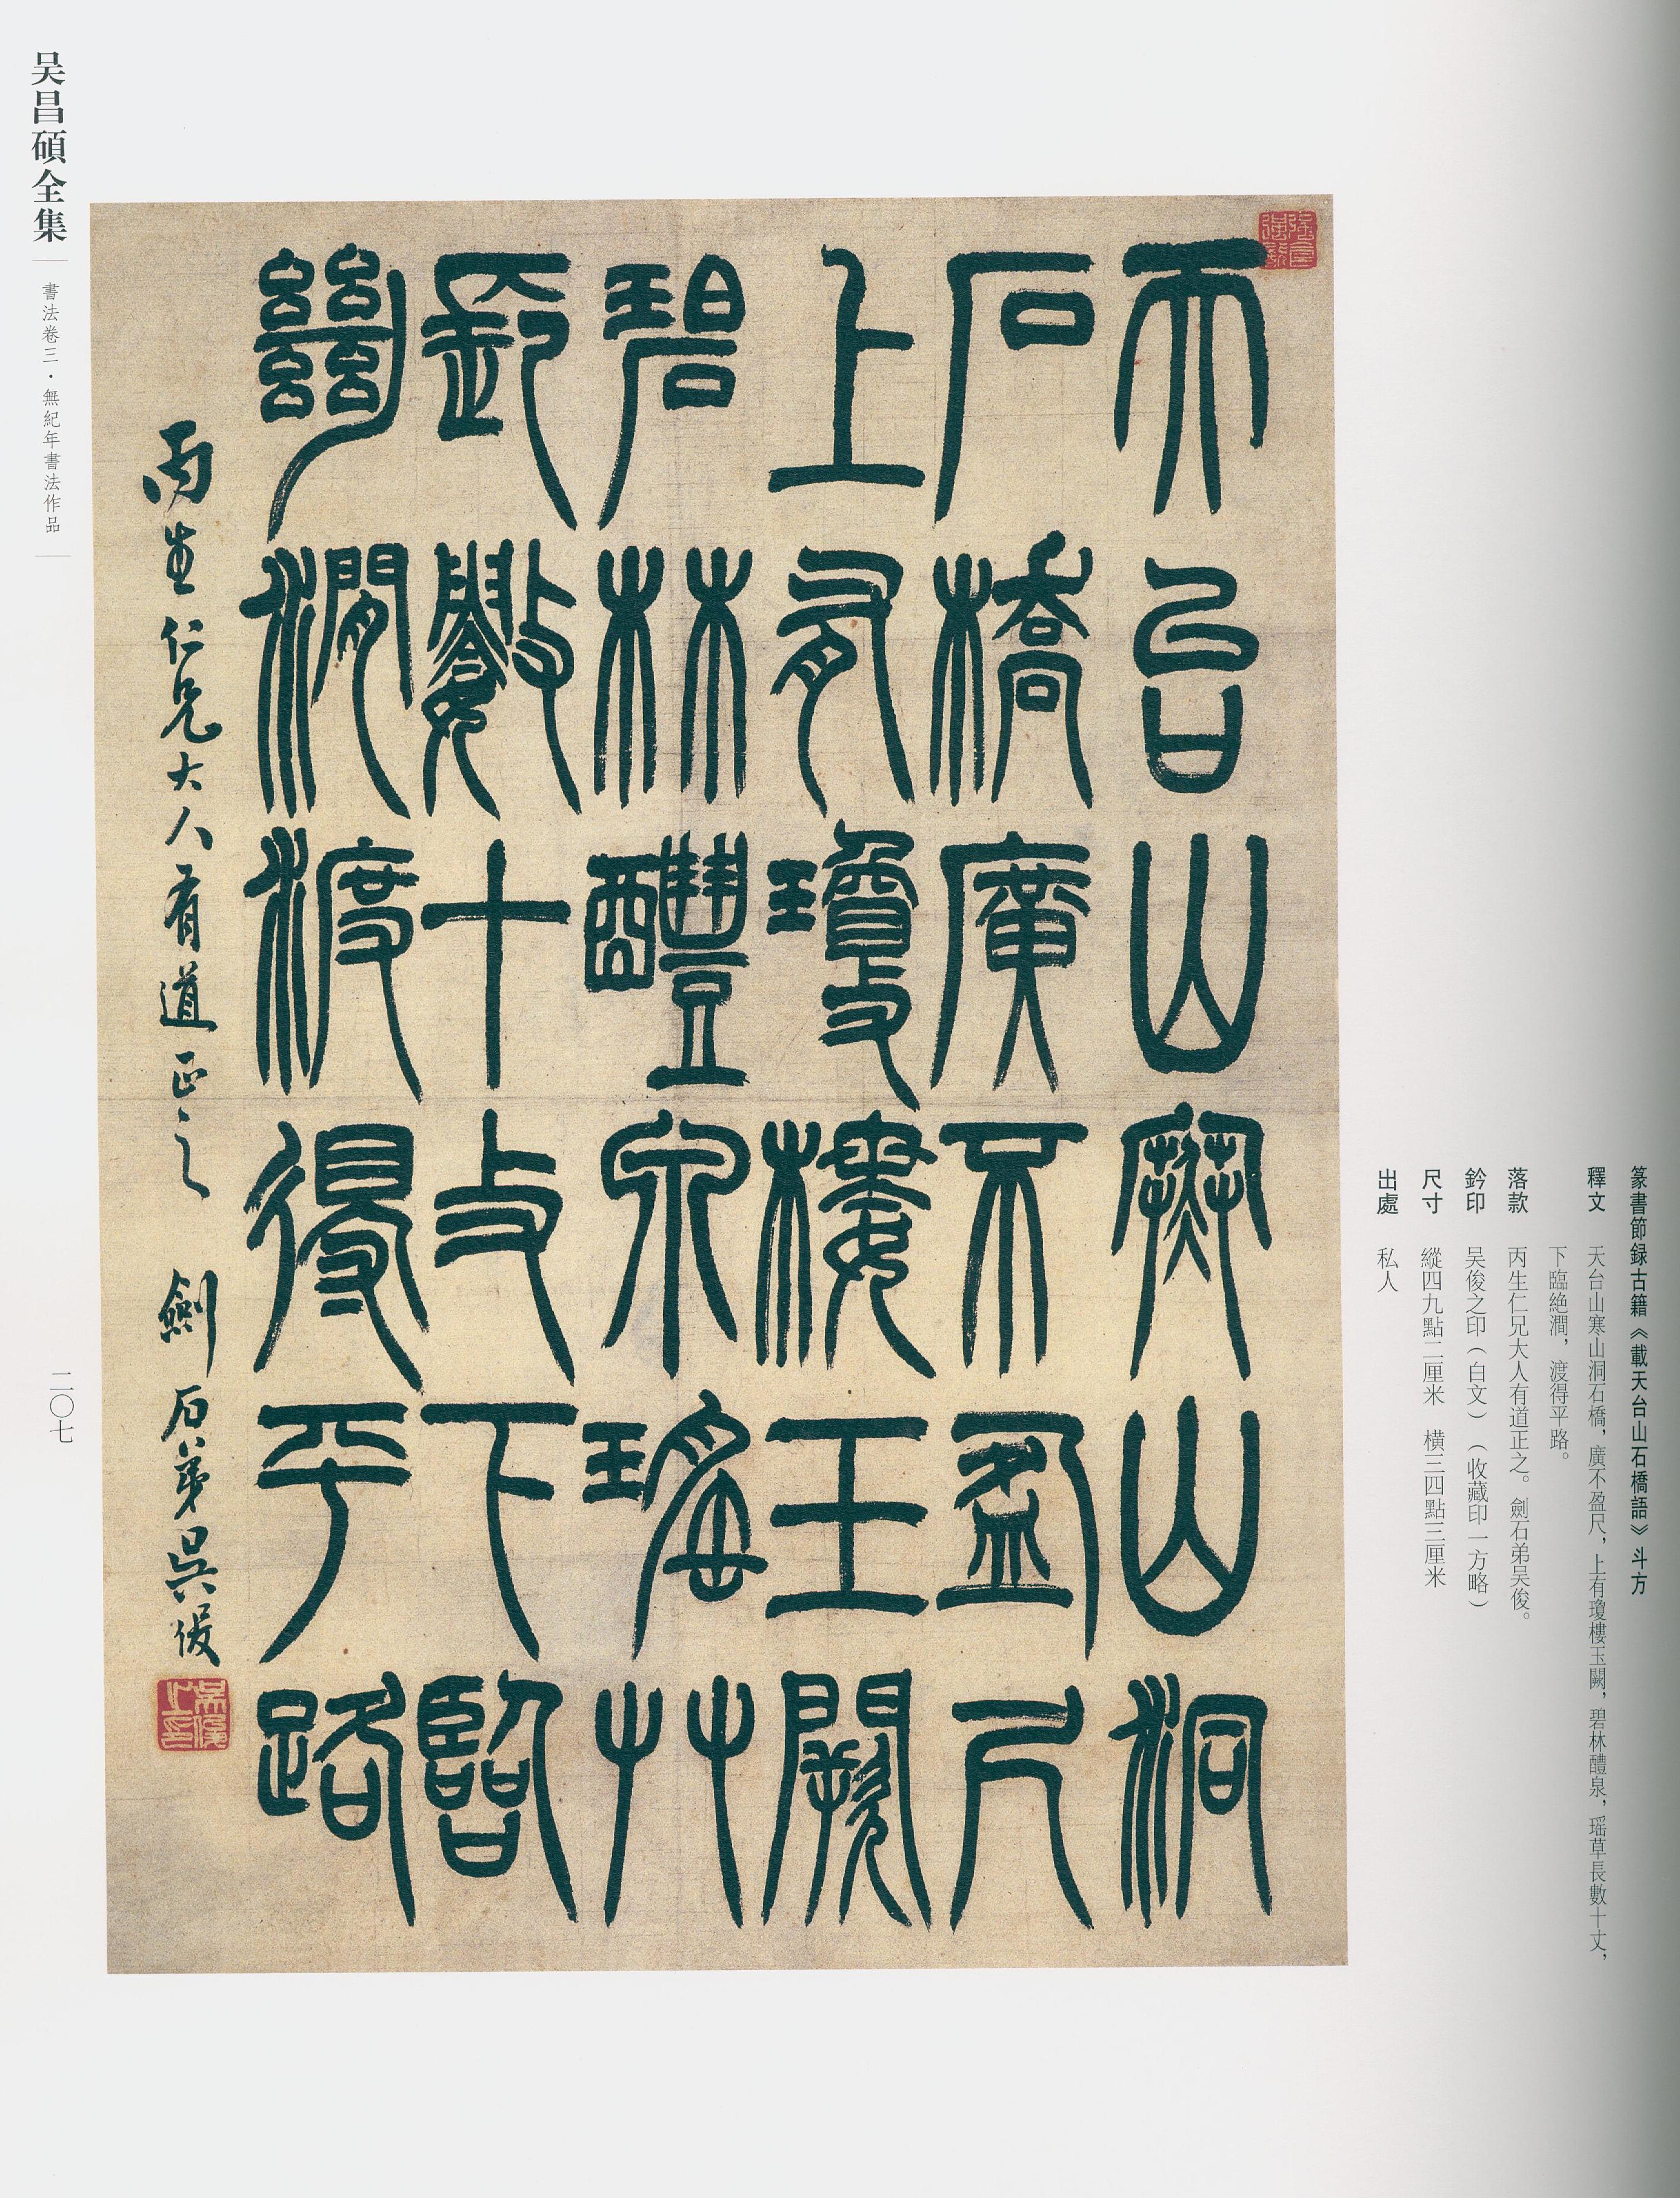 篆書節録古籍《載天台山石橋語》斗方
釋文 天台山寒山洞石橋，廣不盈尺，上有瓊樓玉闕，碧林醴泉，瑶草長數十丈，
下臨絶澗，渡得平路。
落款 丙生仁兄大人有道正之。劍石弟吴俊。
鈐印 吴俊之印（白文）（收藏印一方略）
尺寸 縱四九點二厘米 橫三四點三厘米
出處 私人
天台山寒山洞
石橋廣不盈尺
上有瓊樓玉闕
碧林醴泉瑶艸
長數十丈下臨
絶澗渡得平路
丙生仁兄大人有道正之 劍石弟吳俊
吴俊之印
吴昌碩全集
書法卷三·無紀年書法作品
二〇七